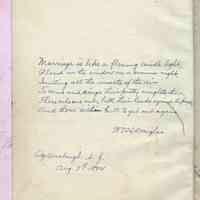 Marriage is like a flaming candle light
Placed in the window on a summer's night
Inviting all the insects of the air
To come and singe their pretty winglets there
Those who are out butt their heads against the pane
And those within butt to get out again
Ogdensburgh, N.Y.
Aug. 7th